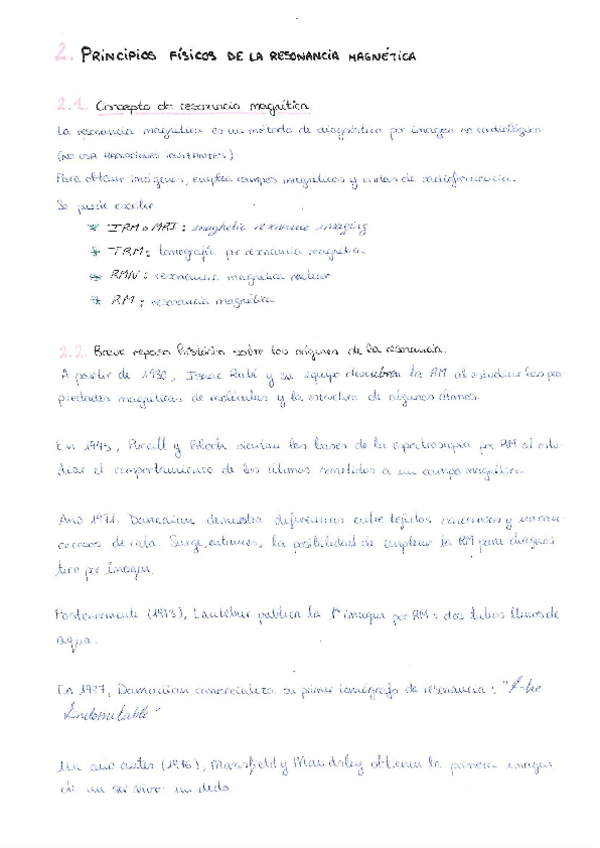 2. PRINCIPIOS FÍSICOS DE LA RESONANCIA MAGNÉTICA
2.1. Concepto de resonancia magnética
La resonancia magnética es un método de diagnóstico por imagen no radiológico
(NO USA RADIACIONES IONIZANTES)
Para obtener imágenes, emplea campos magnéticos y ondas de radiofrecuencia.
Se puede escribir
* IRM o MRI: magnetic resonance imaging
* TRM: tomografía por resonancia magnética
* RMN: resonancia magnética nuclear
* RM: resonancia magnética
2.2. Breve repaso histórico sobre los orígenes de la resonancia.
A partir de 1930, Isaac Rabí y su equipo descubren la RM al estudiar las pro
piedades magnéticas de moléculas y la estructura de algunos átomos.
En 1945, Purcill y Bloch sientan las bases de la espectroscopia por RM al estu-
diar el comportamiento de los sometidos a un campo magnético.
Año 1971. Damadian demuestra diferencias entre tejidos cancerosos y no can-
cerosos de rata. Surge, entonces, la posibilidad de emplear la RM para diagnós
tico por imagen.
Posteriormente (1973), Lautebur publica la 1ª imagen por RM: dos tubos llenos de
agua.
En 1977, Damadian comercializa su primer tomógrafo de resonancia: "The
Indomitable"
Un año antes (1976), Mansfield y Maudsley obtienen la primera imagen
de un ser vivo: un dedo